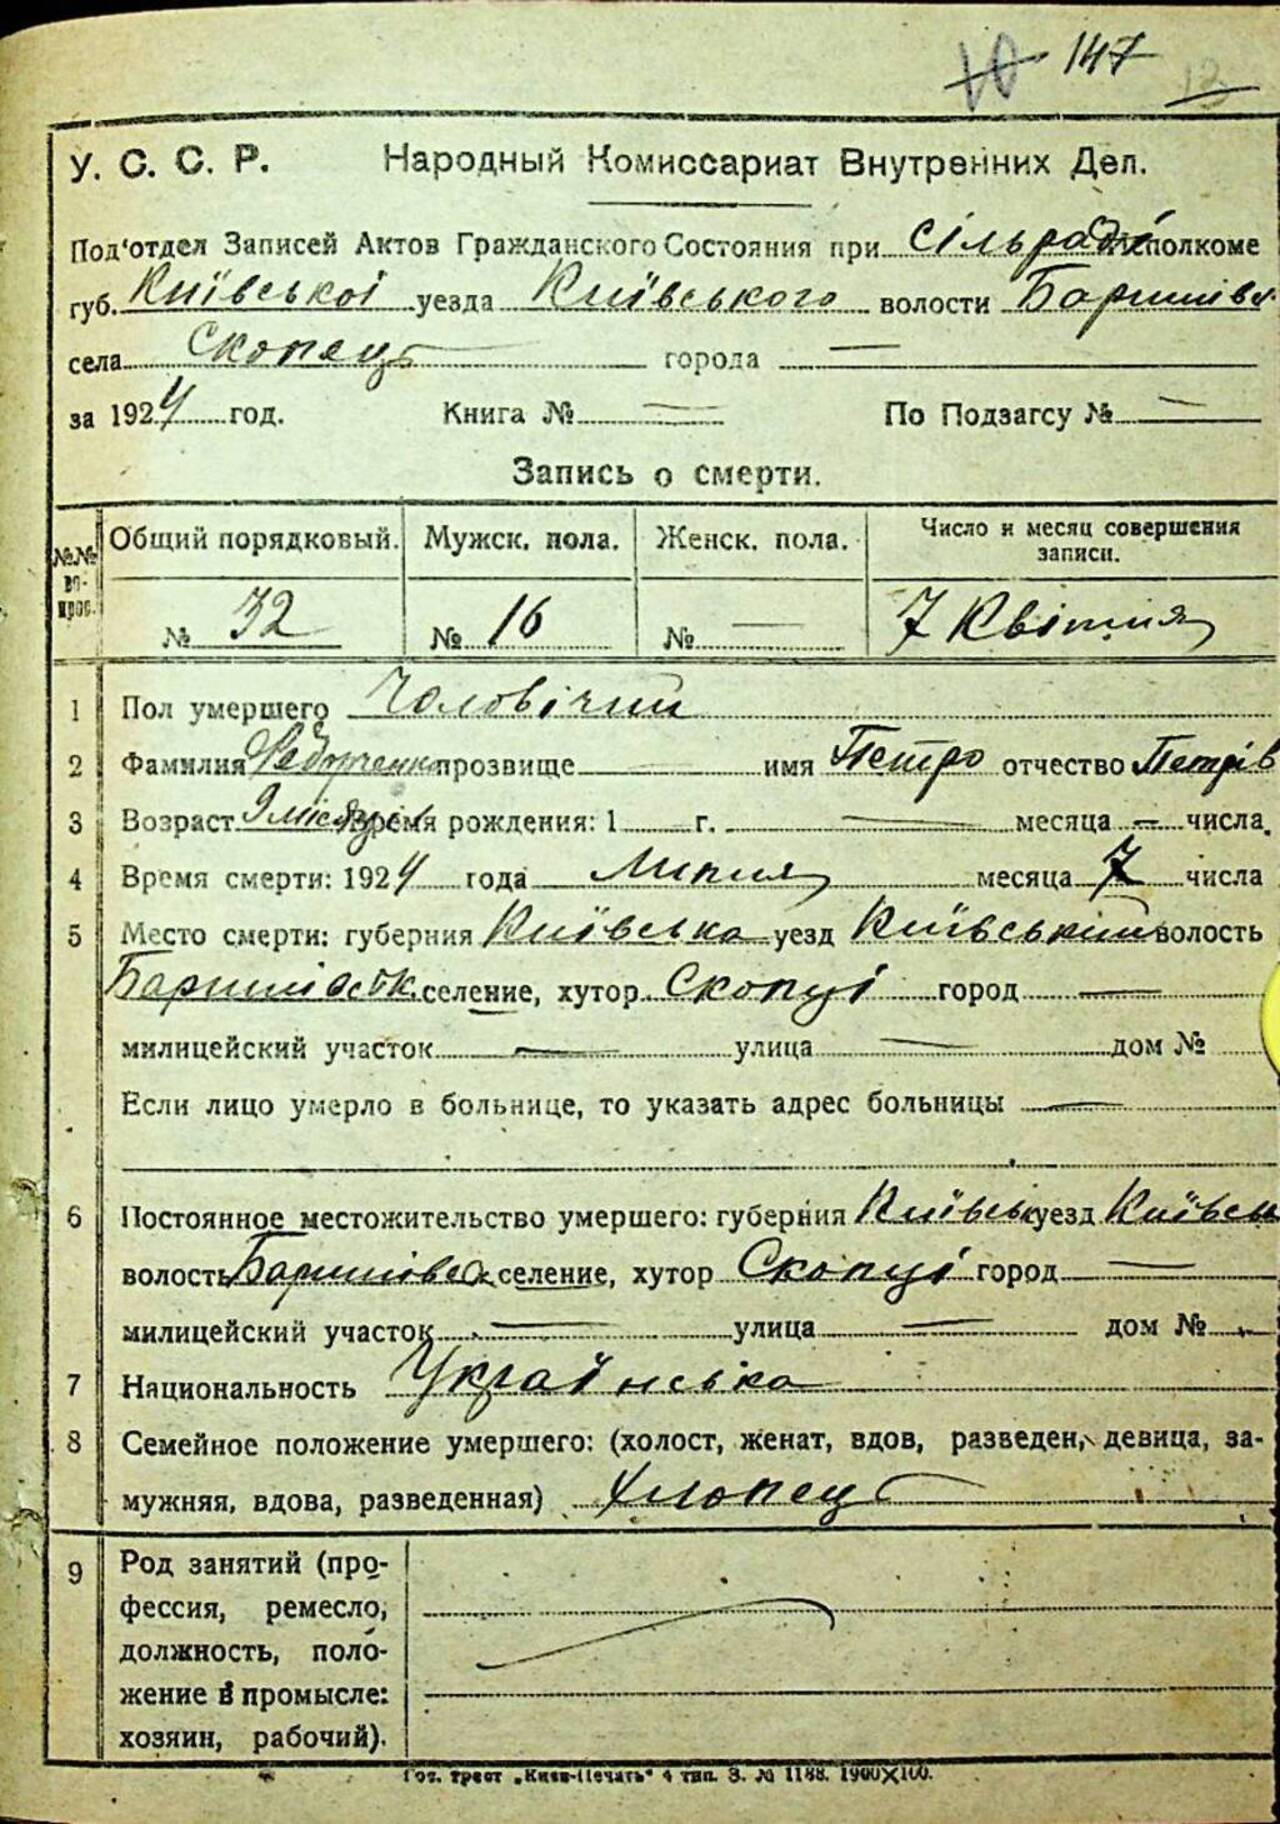 10 147 13
У. С. С. Р. Народный Комиссариат Внутренних Дел.
Под'отдел Записей Актов Гражданского Состояния при Сільраді исполкоме
губ. Київської уезда Київського волости Баришівс.
села Скопець города —
за 1924 год. Книга № — По Подзагсу № —
Запись о смерти.
№№ во- прос. Общий порядковый. Мужск. пола. Женск. пола. Число и месяц совершения записи.
№ 32 № 16 № — 7 Квітня
1 Пол умершего Чоловічий
2 Фамилия прозвище — имя Петро отчество Петрів
3 Возраст 9 місяців время рождения: 1 г. — месяца — числа.
4 Время смерти: 1924 года месяца 7 числа
5 Место смерти: губерния Київська уезд Київський волость
Баришівськ. селение, хутор Скопці город —
милицейский участок — улица — дом №
Если лицо умерло в больнице, то указать адрес больницы —
6 Постоянное местожительство умершего: губерния Київськ уезд Київськ
волость Баришівсь селение, хутор Скопці город —
милицейский участок — улица — дом №
7 Национальность Українська
8 Семейное положение умершего: (холост, женат, вдов, разведен, девица, за-
мужняя, вдова, разведенная) Хлопець
9 Род занятий (про-
фессия, ремесло,
должность, поло-
жение в промысле:
хозяин, рабочий).
Гос. трест „Киев-Печать" 4 тип. З. № 1188. 1900X100.